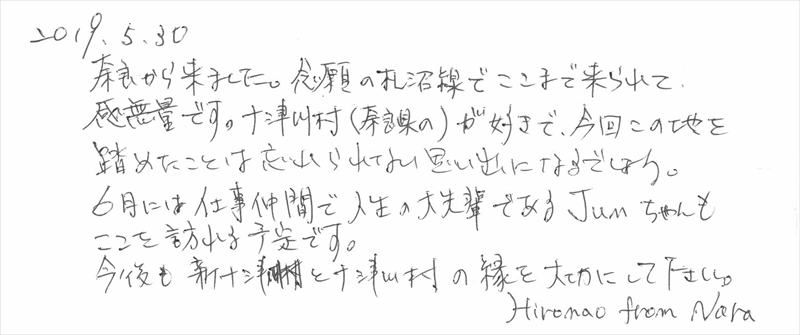 2019.5.30
奈良から来ました。念願の札沼線でここまで来られて、
感無量です。十津川村(奈良県の)が好きで、今回この地を
踏めたことは忘れられない思い出になるでしょう。
6月には仕事仲間で人生の大先輩であるJunちゃんも
ここを訪れる予定です。
今後も新十津川と十津川村の縁を大切にして下さい。
Hironao from Nara